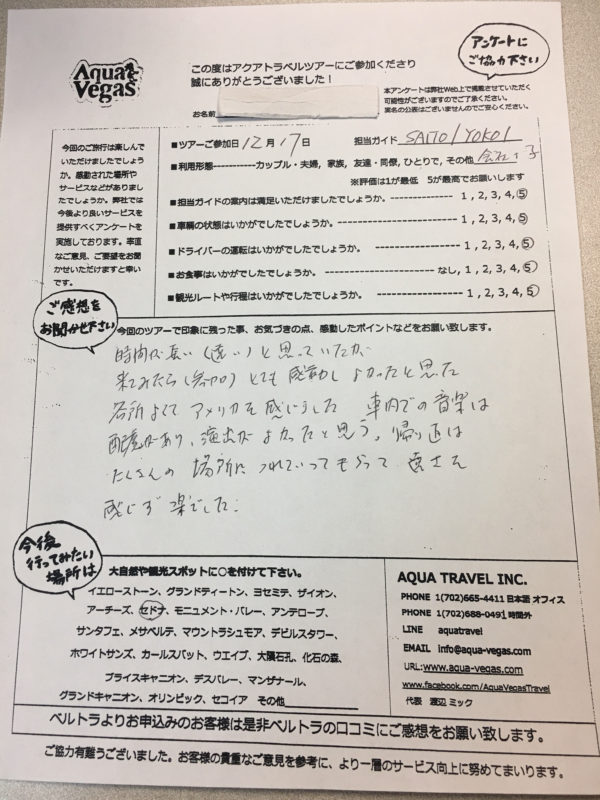 Aqua Vegas
この度はアクアトラベルツアーにご参加くださり
誠にありがとうございました！
アンケートに
ご協力下さい
お名前
本アンケートは弊社Web上で掲載させていただく
可能性がございますのでご了承ください。
実名の公表はございませんのでご安心ください。
今回のご旅行は楽しんで
いただけましたでしょう
か。感動された場所や
サービスなどがありまし
たでしょうか。弊社では
今後より良いサービスを
提供すべくアンケートを
実施しております。率直
なご意見、ご要望をお聞
かせいただけますと幸い
です。
■ツアーご参加日 12月 17日 担当ガイド SAITO/YOKOI
■利用形態------------カップル・夫婦, 家族, 友達・同僚, ひとりで, その他
※評価は1が最低 5が最高でお願いします
■担当ガイドの案内は満足いただけましたでしょうか。---------------- 1, 2, 3, 4, 5
■車輌の状態はいかがでしたでしょうか。---------------------- 1, 2, 3, 4, 5
■ドライバーの運転はいかがでしたでしょうか。------------------ 1, 2, 3, 4, 5
■お食事はいかがでしたでしょうか。-------------------- なし, 1, 2, 3, 4, 5
■観光ルートや行程はいかがでしたでしょうか。------------------ 1, 2, 3, 4, 5
ご感想を
お聞かせ下さい
今回のツアーで印象に残った事、お気づきの点、感動したポイントなどをお願い致します。
時間が長い（遠い）と思っていたが
来てみたら（参加）とても感動しよかったと思った
名所よくて アメリカを感じました 車内での音楽は
配慮があり、演出がよかったと思う。帰り道は
たくさんの 場所に つれていってもらって 遠さを
感じず 楽でした。
今後
行ってみたい
場所は
大自然や観光スポットに○を付けて下さい。
イエローストーン、グランドティートン、ヨセミテ、ザイオン、
アーチーズ、セドナ、モニュメント・バレー、アンテロープ、
サンタフェ、メサベルテ、マウントラシュモア、デビルスタワー、
ホワイトサンズ、カールスバット、ウエイブ、大隕石孔、化石の森、
ブライスキャニオン、デスバレー、マンザナール、
グランドキャニオン、オリンピック、セコイア その他
AQUA TRAVEL INC.
PHONE 1(702)665-4411 日本語 オフィス
PHONE 1(702)688-0491 時間外
LINE aquatravel
EMAIL info@aqua-vegas.com
URL:www.aqua-vegas.com
www.facebook.com/AquaVegasTravel
代表 渡辺 ミック
ベルトラよりお申込みのお客様は是非ベルトラの口コミにご感想をお願い致します。
ご協力有難うございました。お客様の貴重なご意見を参考に、より一層のサービス向上に努めてまいります。